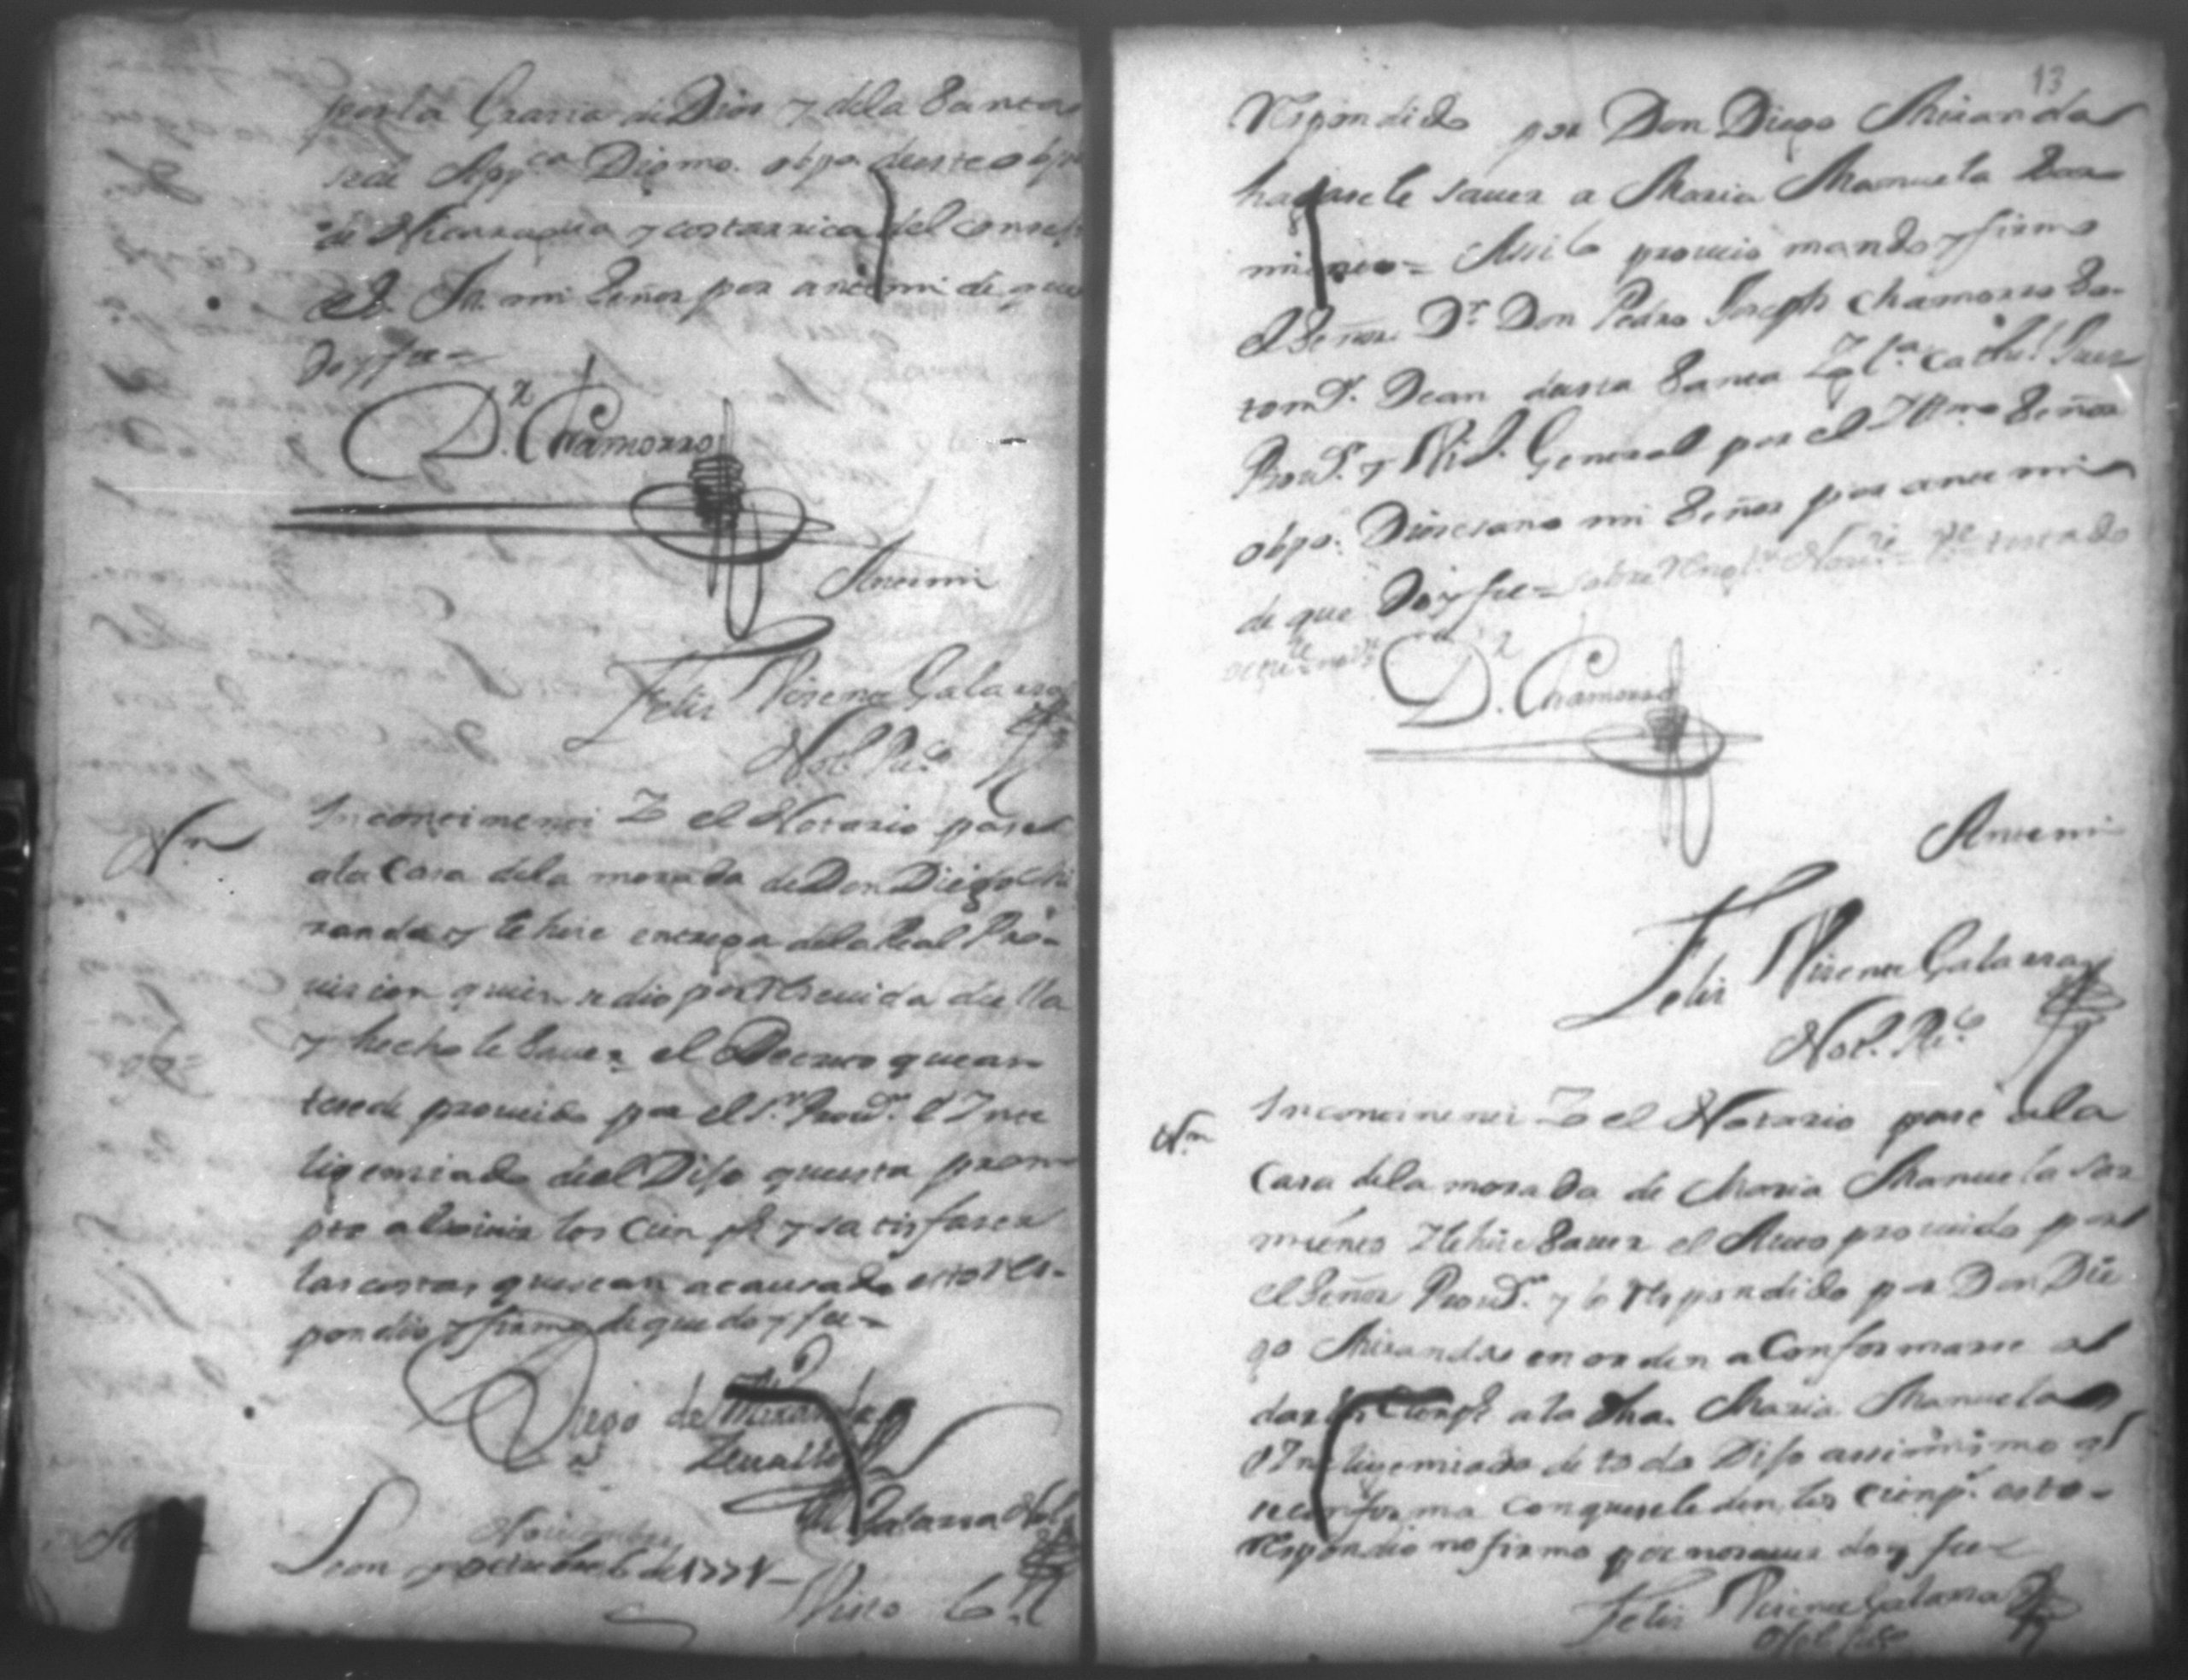 por la Gracia de Dios y dela Santa
sede Appca Digmo. obpo. de este obpdo
de Nicaragua y costarrica del conse
Sr. mi Señor por ante mi de que
doy fee=
Dr. Chamorro
Ante mi
Felix Visente Galarza
Not. Ppco
Nn
Incontinenti Yo el Notario pasé
ala Casa dela morada de Don Diego Mi
randa y le hise entrega dela Real Pro-
uision quien se dio por Reseuida de ella
y hechole Sauer el Decreto que an-
tesede proueido por el Sr. Prouor. é Inte
ligenciado de el Dijo que esta prom
pto a los cien ps y satisfaser
las costas que se an acausado esto res-
pondio y firmo de que doy fee=
Diego de Miranda
Zeuallos
Galarza Not
Leon y Nouiembre 6 de 1774-
Visto lo
13
Respondido por Don Diego Miranda
hagasele sauer a Maria Manuela Sar
miento= Assi lo proueió mando y firmo
el Señor Dr. Don Pedro Joseph Chamorro So-
tomr. Dean de esta Santa Yga. Cathl. Juez
Prouor. y Vico. General por el Yllmo Señor
obpo. Diosesano mi Señor por ante mi
de que Doy fee= sobre Reng. Nou. testado
Dr. Chamorro
Ante mi
Felix Visente Galarza
Not. Ppco
Nn
Incontinenti Yo el Notario pasé ala
Casa dela morada de Maria Manuela Sar
miento y le hise Sauer el Auto proueido por
el Señor Prouor. y lo Respondido por Don Die
go Miranda en orden a Conformarse al
dar los Cien ps a la dha. Maria Manuela
é Inteligenciada de todo Dijo assimismo qe
se conforma con que se le den los cien ps. esto
Respondio no firmo por no sauer doy fee
Felix Visente Galarza
Not. Ppco